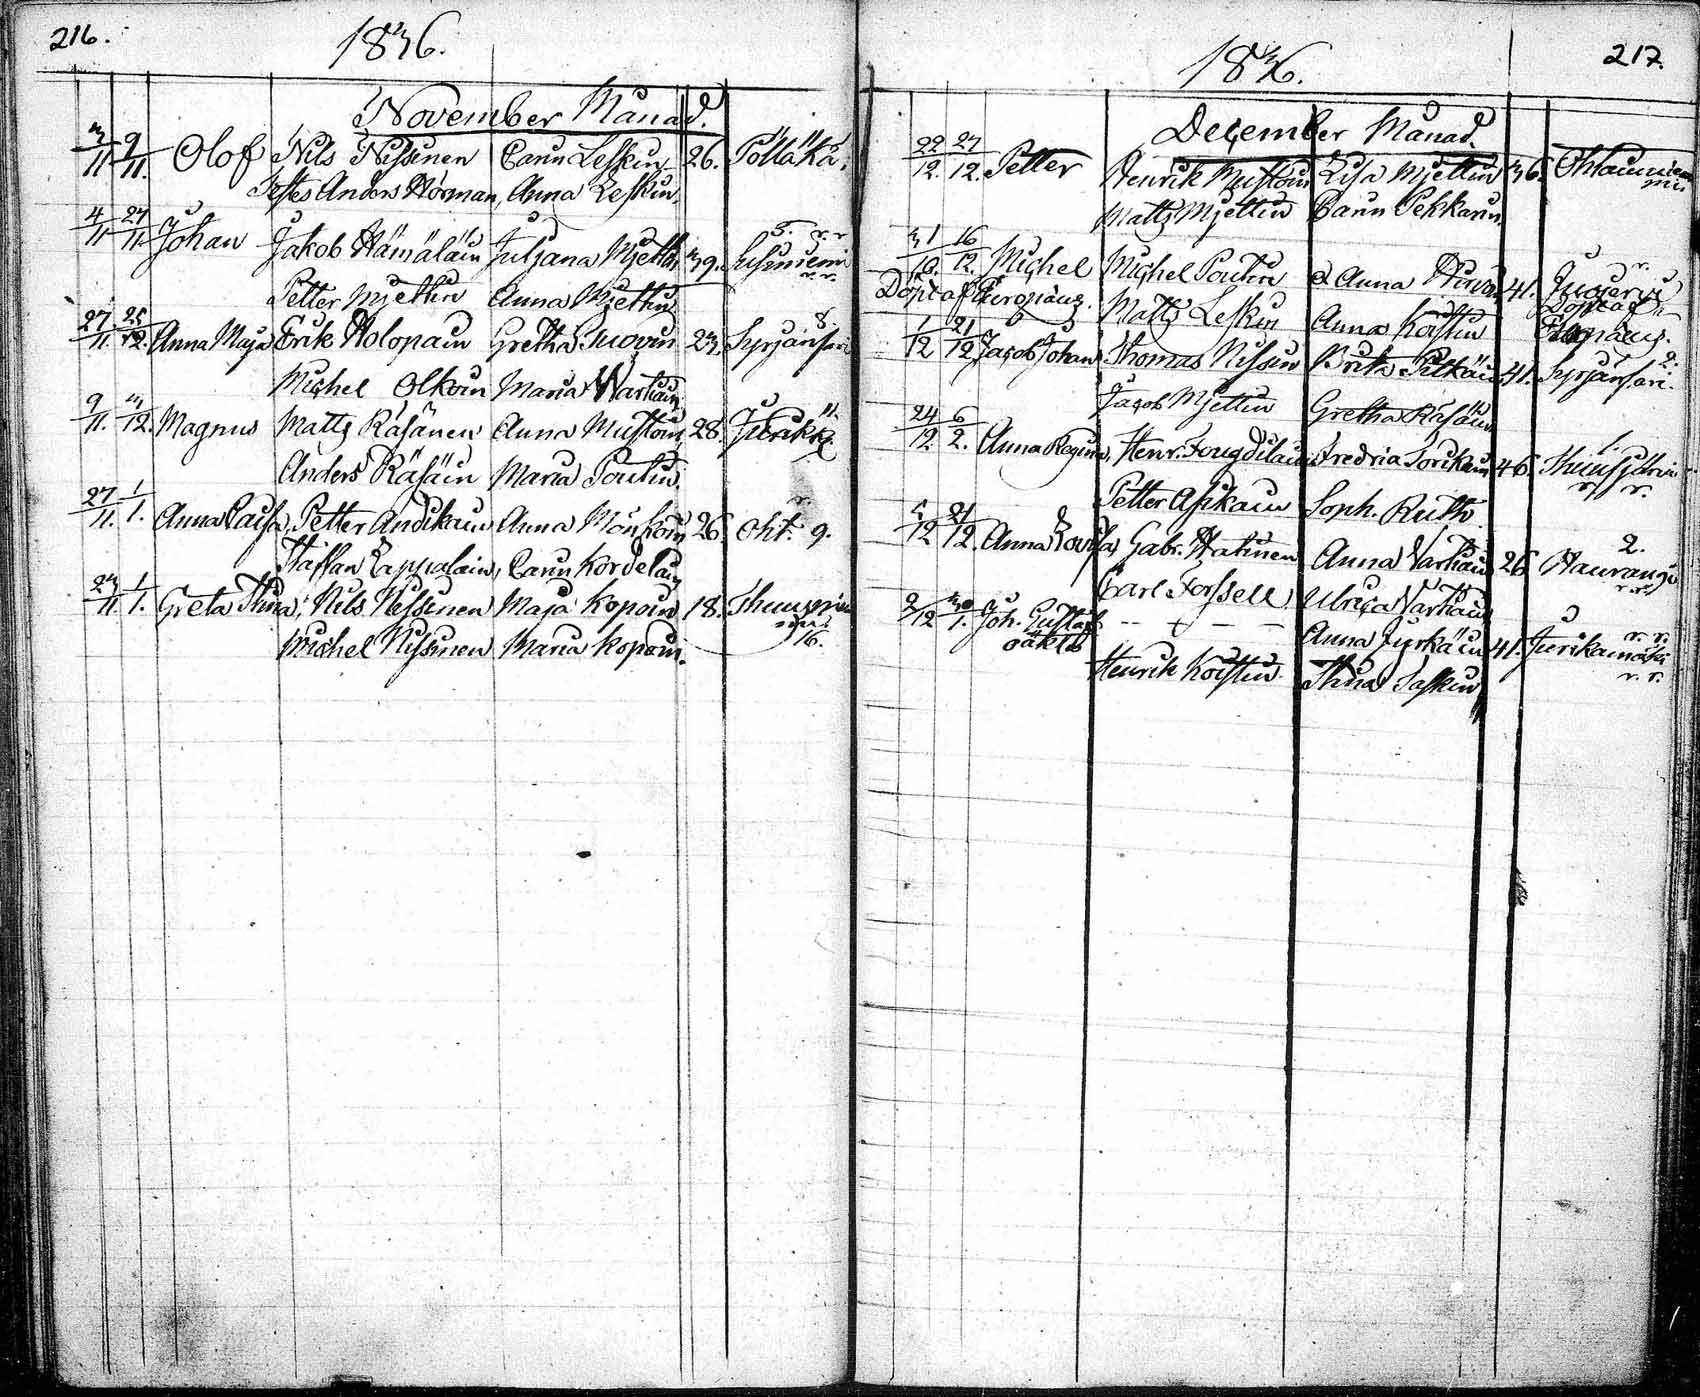 216.
1836.
November Månad.
3/11 9/11. Olof Nils Nissinen Carin Leskin 26. Pölläkä.
Testes Anders Hörman, Anna Leskin.
5. r. r
4/11 27/11 Johan Jakob Hämäläin Juljana Mjettin 39.
r. r.
Petter Mjettin Anna Mjettin
8
27/11 25/12. Anna Maja Erik Holopain Gretha Suovin 23. Syrjänsari
Michel Olkoin Maria Wartiain
11.
9/11. 3/12. Magnus Matts Räsänen Anna Mustoin 28.
Anders Räsäin Maria Poutin.
r.
27/11. 1/1. Anna Caisa Petter Andikain Anna Mönkoin 26. Oht. 9.
Staffan Lappalain, Carin Kordelain
23/11. 1/1. Greta Stina, Nils Nissinen Maja Kopoin 18.
Michel Nissinen Maria Kopoin. 16.
217.
1836.
December Månad.
22/12. 27/12. Petter Henrik Mustoin Lisa Mjettin 36.
Matts Mjettin Carin Pekkarin
r.
31/10. 16/12. Michel Michel Poutin & Anna Hirvon 41.
Döpt af Europäus. Matts Leskin Anna Koistin Döpt af
Europäus.
1/12 21/12 Jacob Johan Thomas Nissin Brita Pitkäin 41. Syrjänsari. 2.
Jacob Mjettin Gretha Räsäin
1.
24/12. 6/2. Anna Regina, Henr. Fougdilain Fredria Torikain 46.
r. r.
Petter Asikain Soph. Ruth
2.
5/12 21/12. Anna Lovisa Gabr. Hatinen Anna Vartiain 26 Haurangi
r. r.
Carl Forssell Ulrica Vartiain
2/12 30/1. Joh. Gustaf - - + - - Anna Jyrkäin 41. Jurikamäki
r. r.
oäkta
r. r.
Henrik Koistin. Stina Saskin